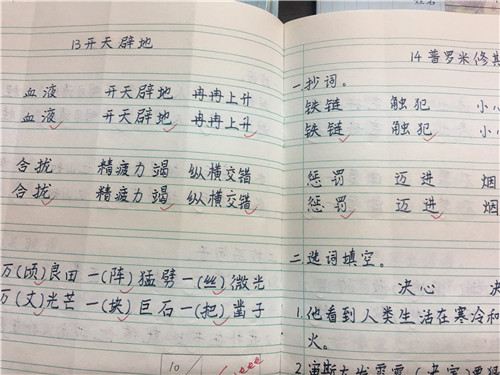 13开天辟地
血液 开天辟地 冉冉上升
血液 开天辟地 冉冉上升
合拢 精疲力竭 纵横交错
合拢 精疲力竭 纵横交错
万(顷)良田 一(阵)猛劈 一(丝)微光
万(丈)光芒 一(块)巨石 一(把)凿子
10
14普罗米修斯
一.抄词。
铁链 触犯 小
铁链 触犯 小
惩罚 迈进 烟
惩罚 迈进 烟
二.选词填空。
决心 决
1.他看到人类生活在寒冷和
火。
2.宙斯大发雷霆(决定)要